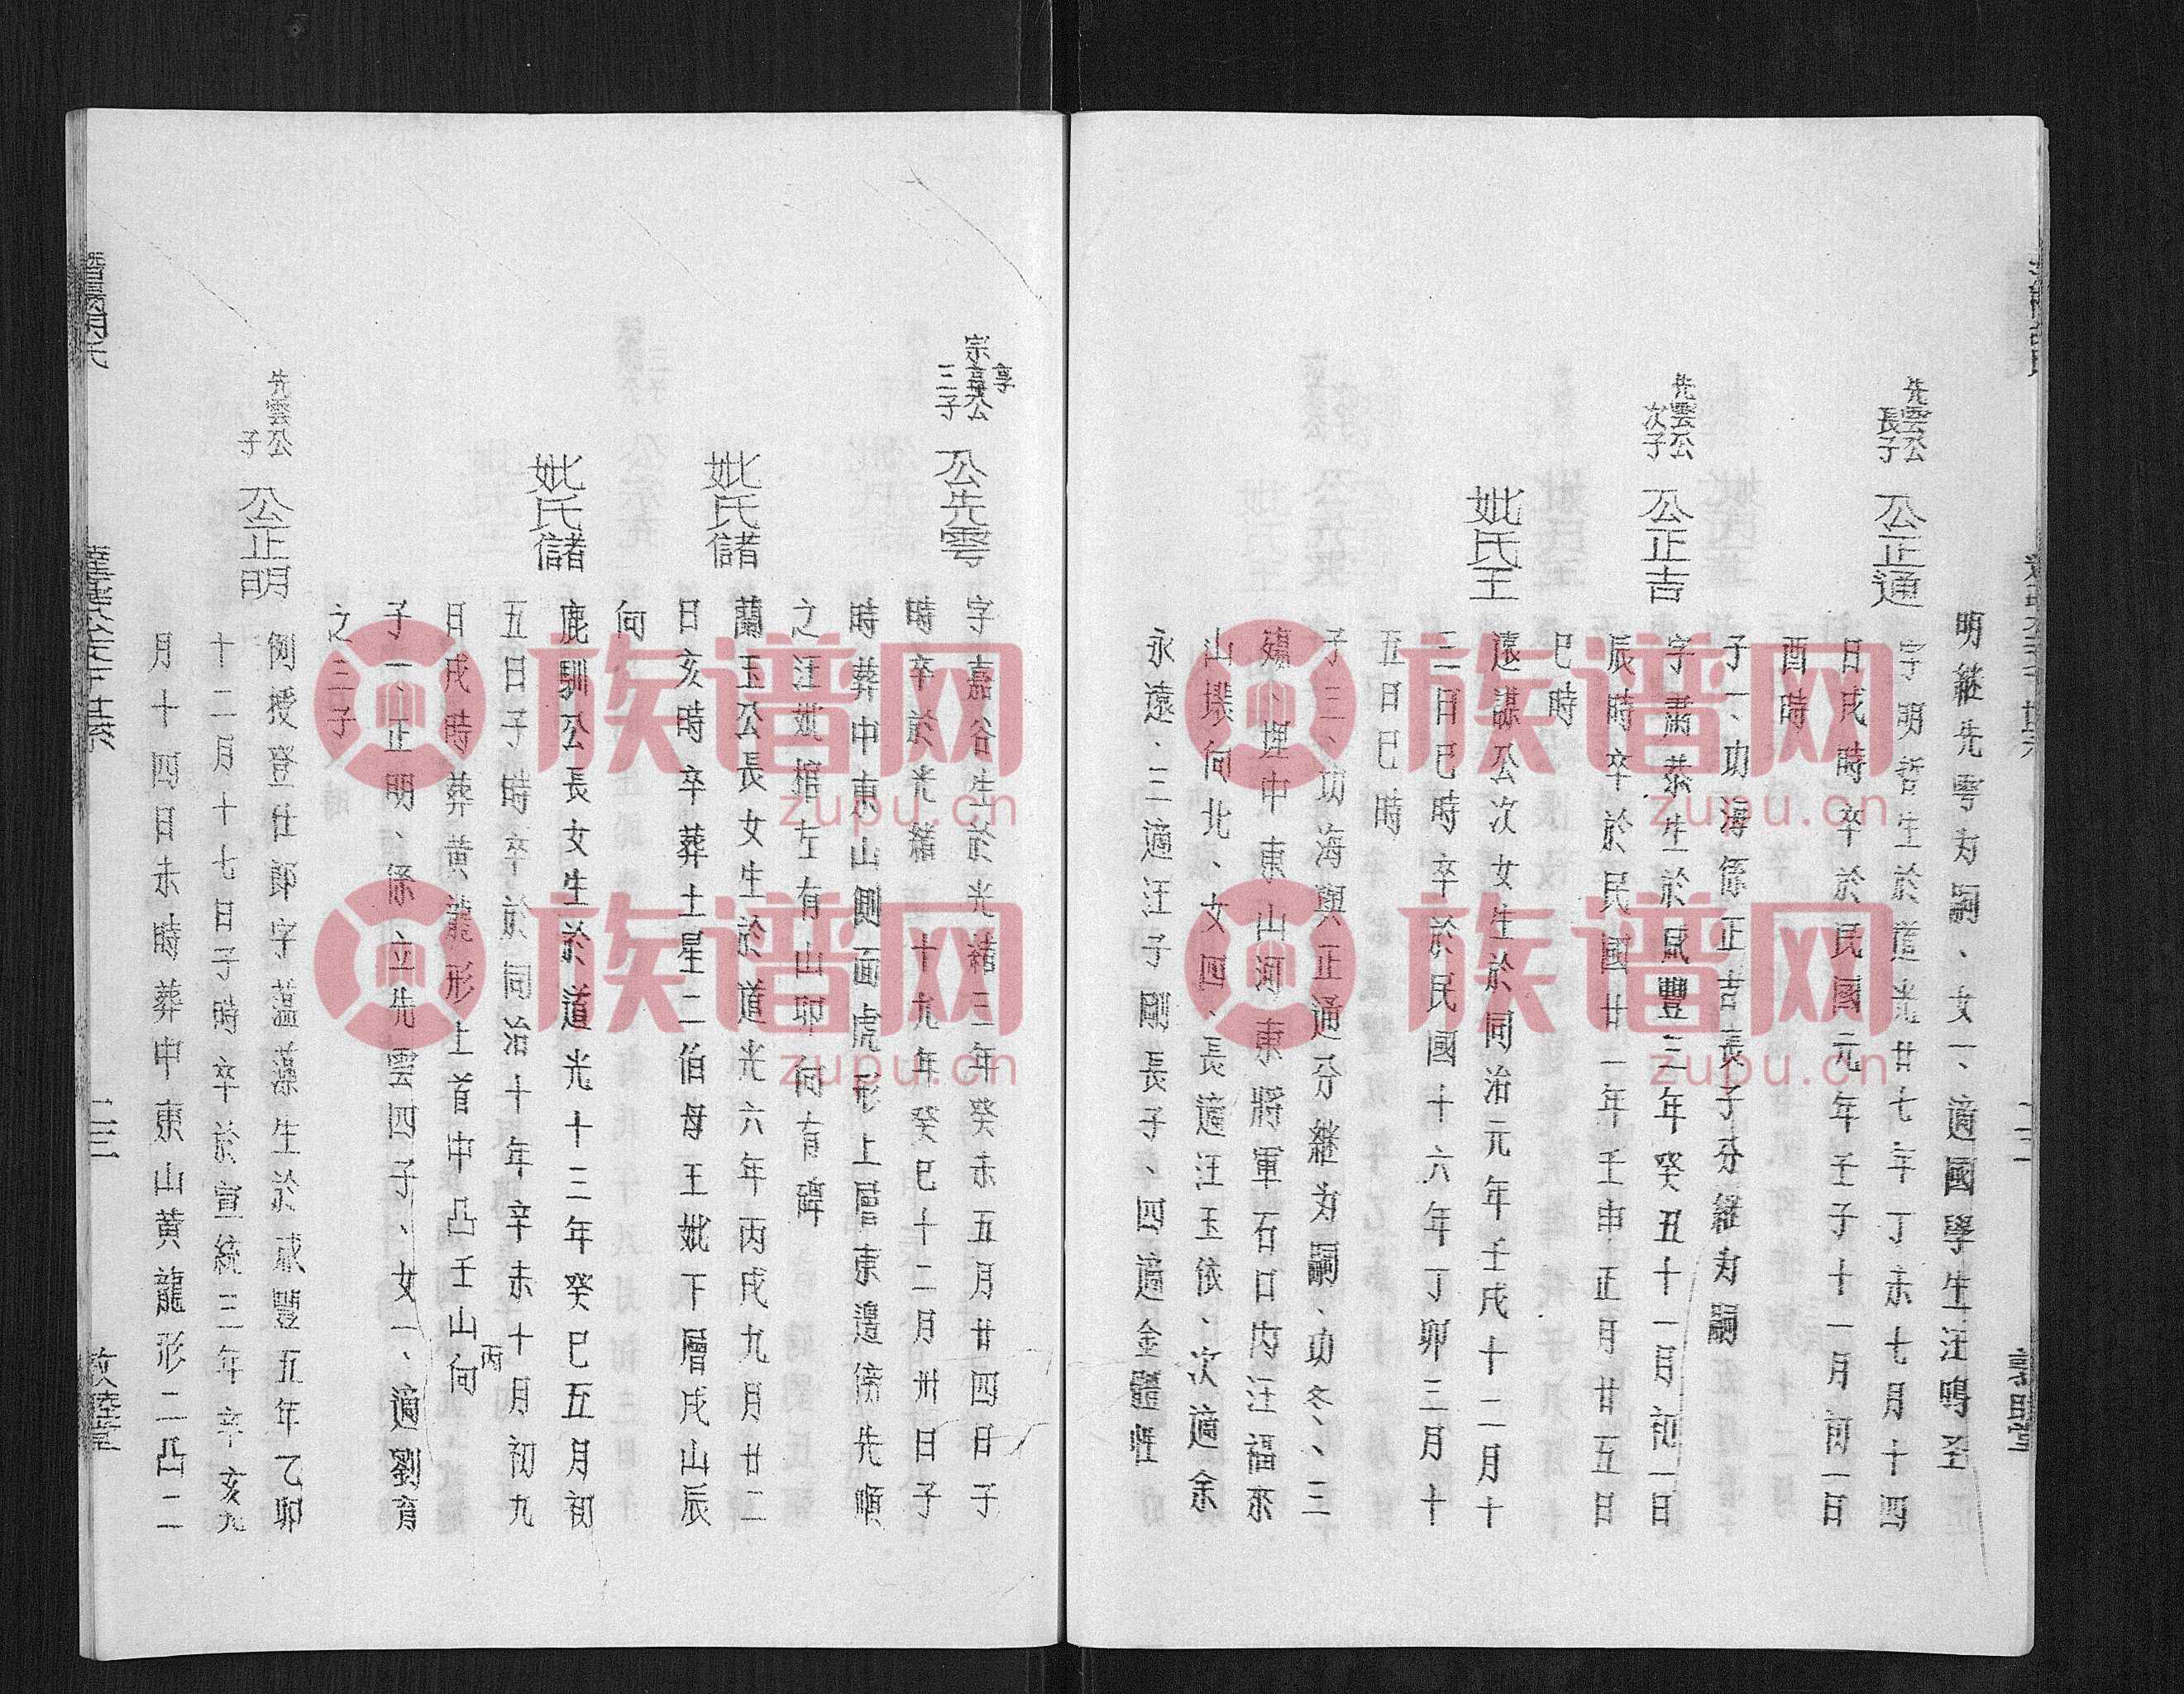 明繼先雩为嗣、女一、適國學生汪鳴圣
先雲公
長子
公正通
字明哲生於道光廿七年丁未七月十四
日戌時卒於民國元年壬子十一月初一日
酉時
子一、功海係正吉長子分繼为嗣
先雲公
次子
公正吉
字肅恭生於咸豐三年癸丑十一月初一日
辰時卒於民國廿一年壬申正月廿五日
巳時
妣氏王
遠謀公次女生於同治元年壬戌十二月十
三日巳時卒於民國十六年丁卯三月十
五日巳時
子三、功海與正通分継为嗣、功冬、三
殤、埋中東山河東將軍石日内汪福來
山塝向北、女四、長適汪玉依、次適余
永遠、三適汪子剛長子、四適金體旺
享
宗高公
三子
公先雩
字嘉谷生於光緒三年癸未五月廿四日子
時卒於光緒十九年癸巳十二月卅日子
時葬中東山側面虎形上層東邊傍先順
之汪妣棺左有山卯向有碑
妣氏儲
蘭玉公長女生於道光六年丙戌九月廿二
日亥時卒葬土星二伯母王妣下層戌山辰
向
妣氏儲
鹿馴公長女生於道光十三年癸巳五月初
五日子時卒於同治十年辛未十月初九
日戌時葬黄龍形上首中凸壬山丙向
子一、正明、係立先雲四子、女一、適劉育
之三子
先雲公
子
公正明
例授登仕郎字蕰藻生於咸豐五年乙卯
十二月十七日子時卒於宣統三年辛亥九
月十四日未時葬中東山黄龍形二凸二
二三
敦睦堂
族谱网
zupu.cn
族谱网
zupu.cn
族谱网
zupu.cn
族谱网
zupu.cn